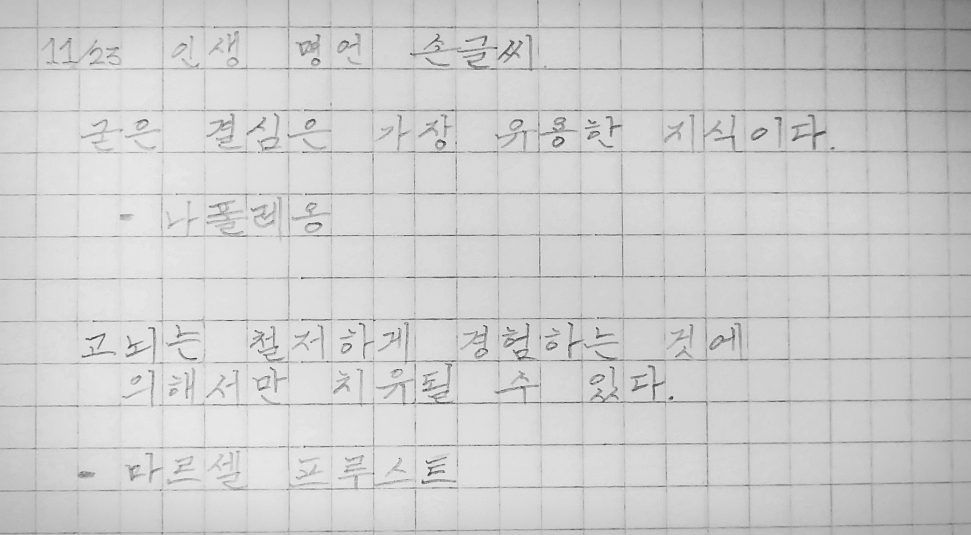 11/23 인생 명언 손글씨.
굳은 결심은 가장 유용한 지식이다.
- 나폴레옹
고뇌는 철저하게 경험하는 것에
의해서만 치유될 수 있다.
- 마르셀 프루스트